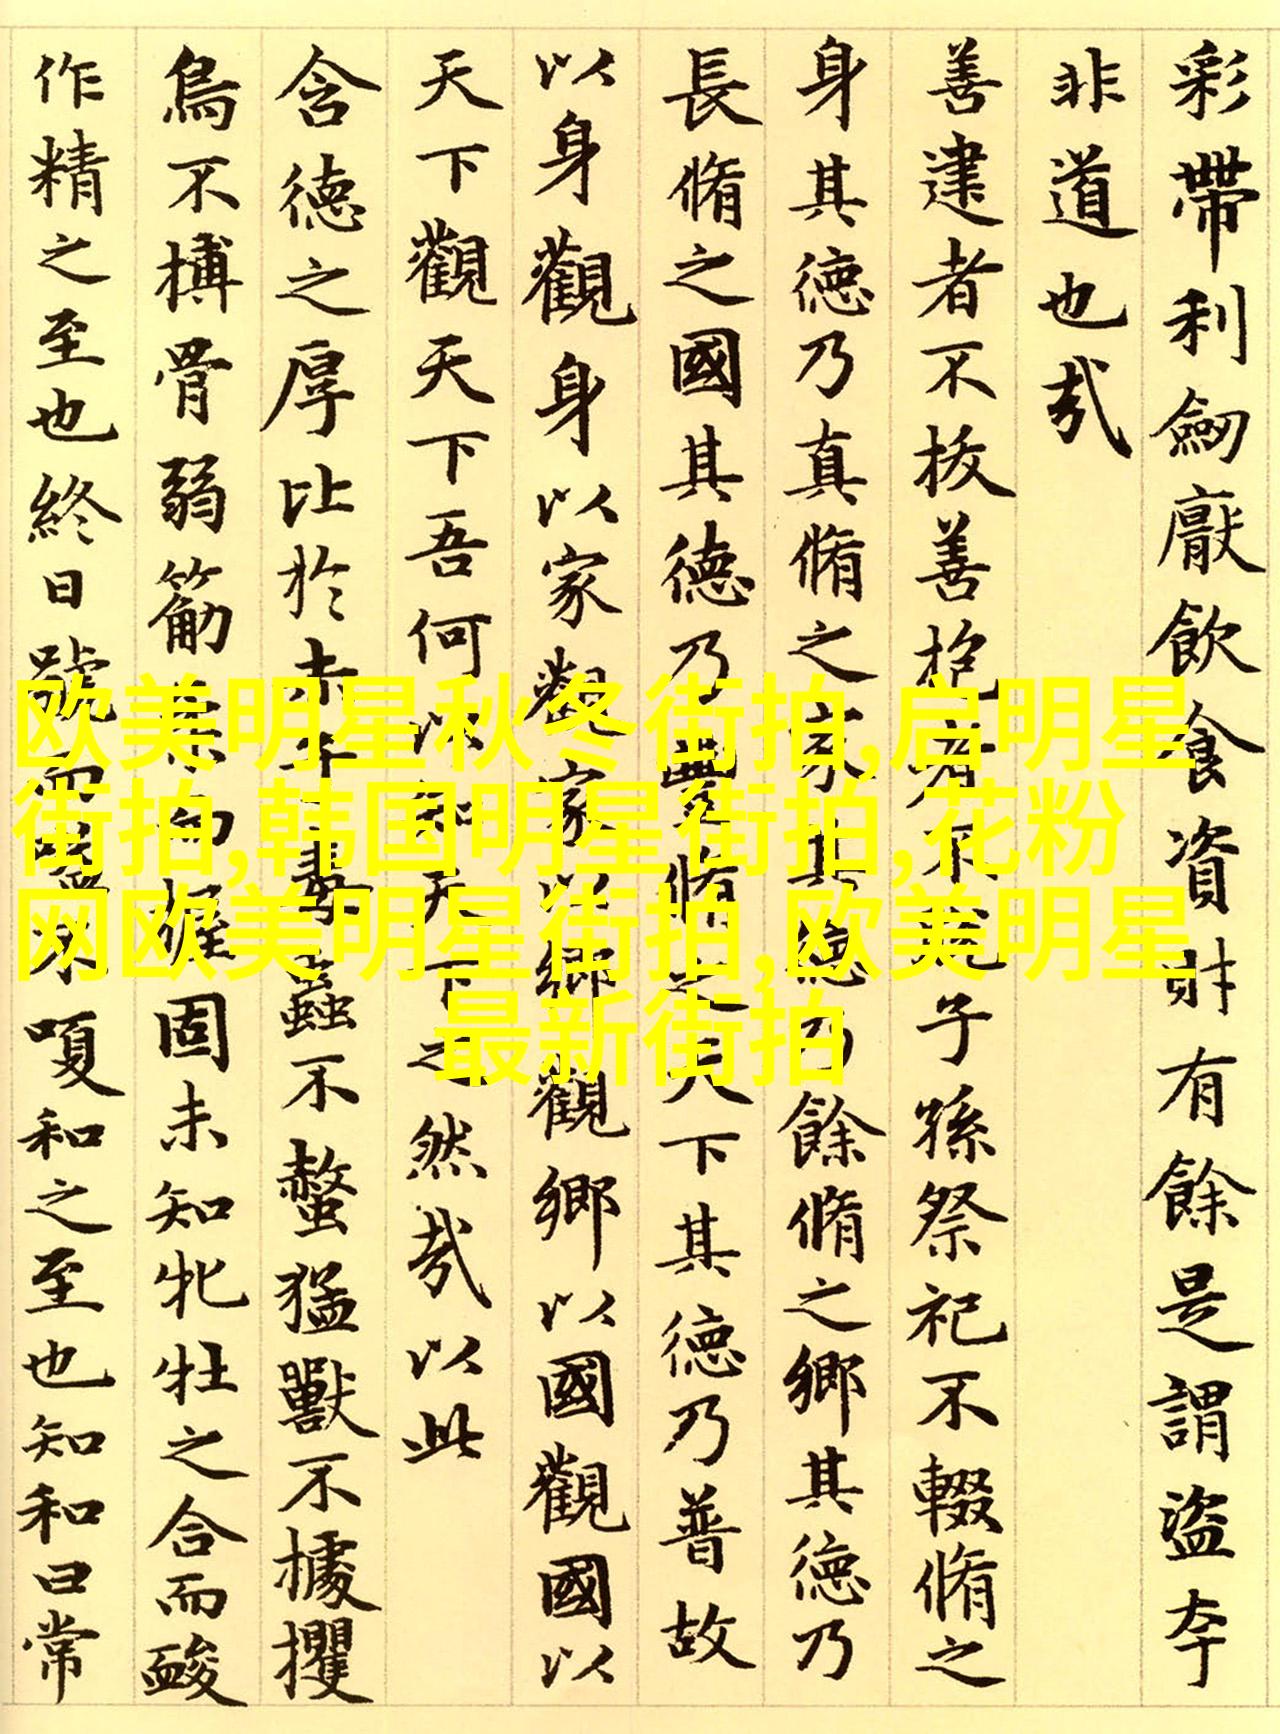 彩帶利劒厭飲食資財有餘是謂盜夸
非道也哉
善建者不拔善抱者不脫子孫祭祀不輟脩之
身其德乃真脩之家其德乃餘脩之鄉其德乃
長脩之國其德乃豐脩之天下其德乃普故
以身觀身以家觀家以鄉觀鄉以國觀國以
天下觀天下吾何以知天下之然哉以此
含德之厚比於赤子毒蟲不螫猛獸不據攫
鳥不搏骨弱筋柔而握固未知牝牡之合而䘒
作精之至也終日號而嗌不嗄和之至也知和曰常
欧美明星秋冬街拍,启明星
街拍,韩国明星街拍,花粉
网欧美明星街拍,欧美明星
最新街拍